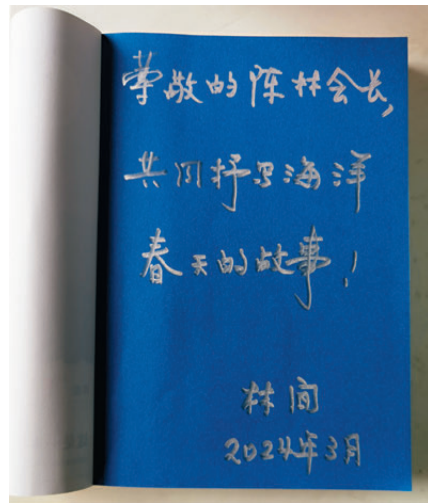 尊敬的陈林会长,
共同抒写海洋
春天的故事!
林间
2024年3月